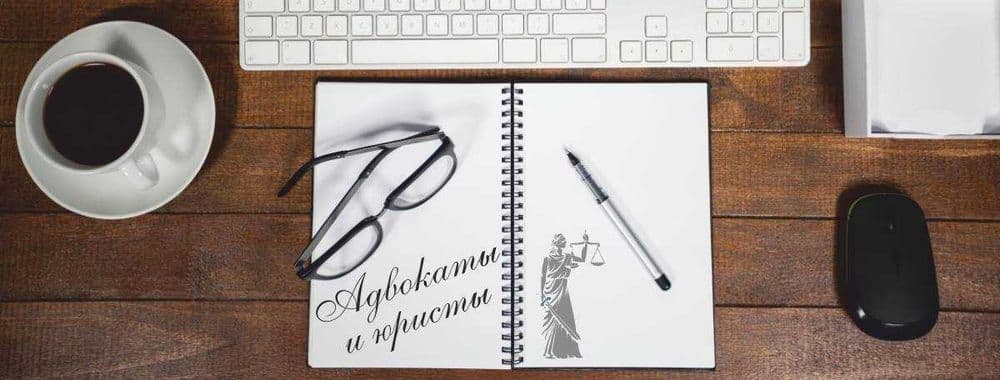 Адвокаты
и юристы